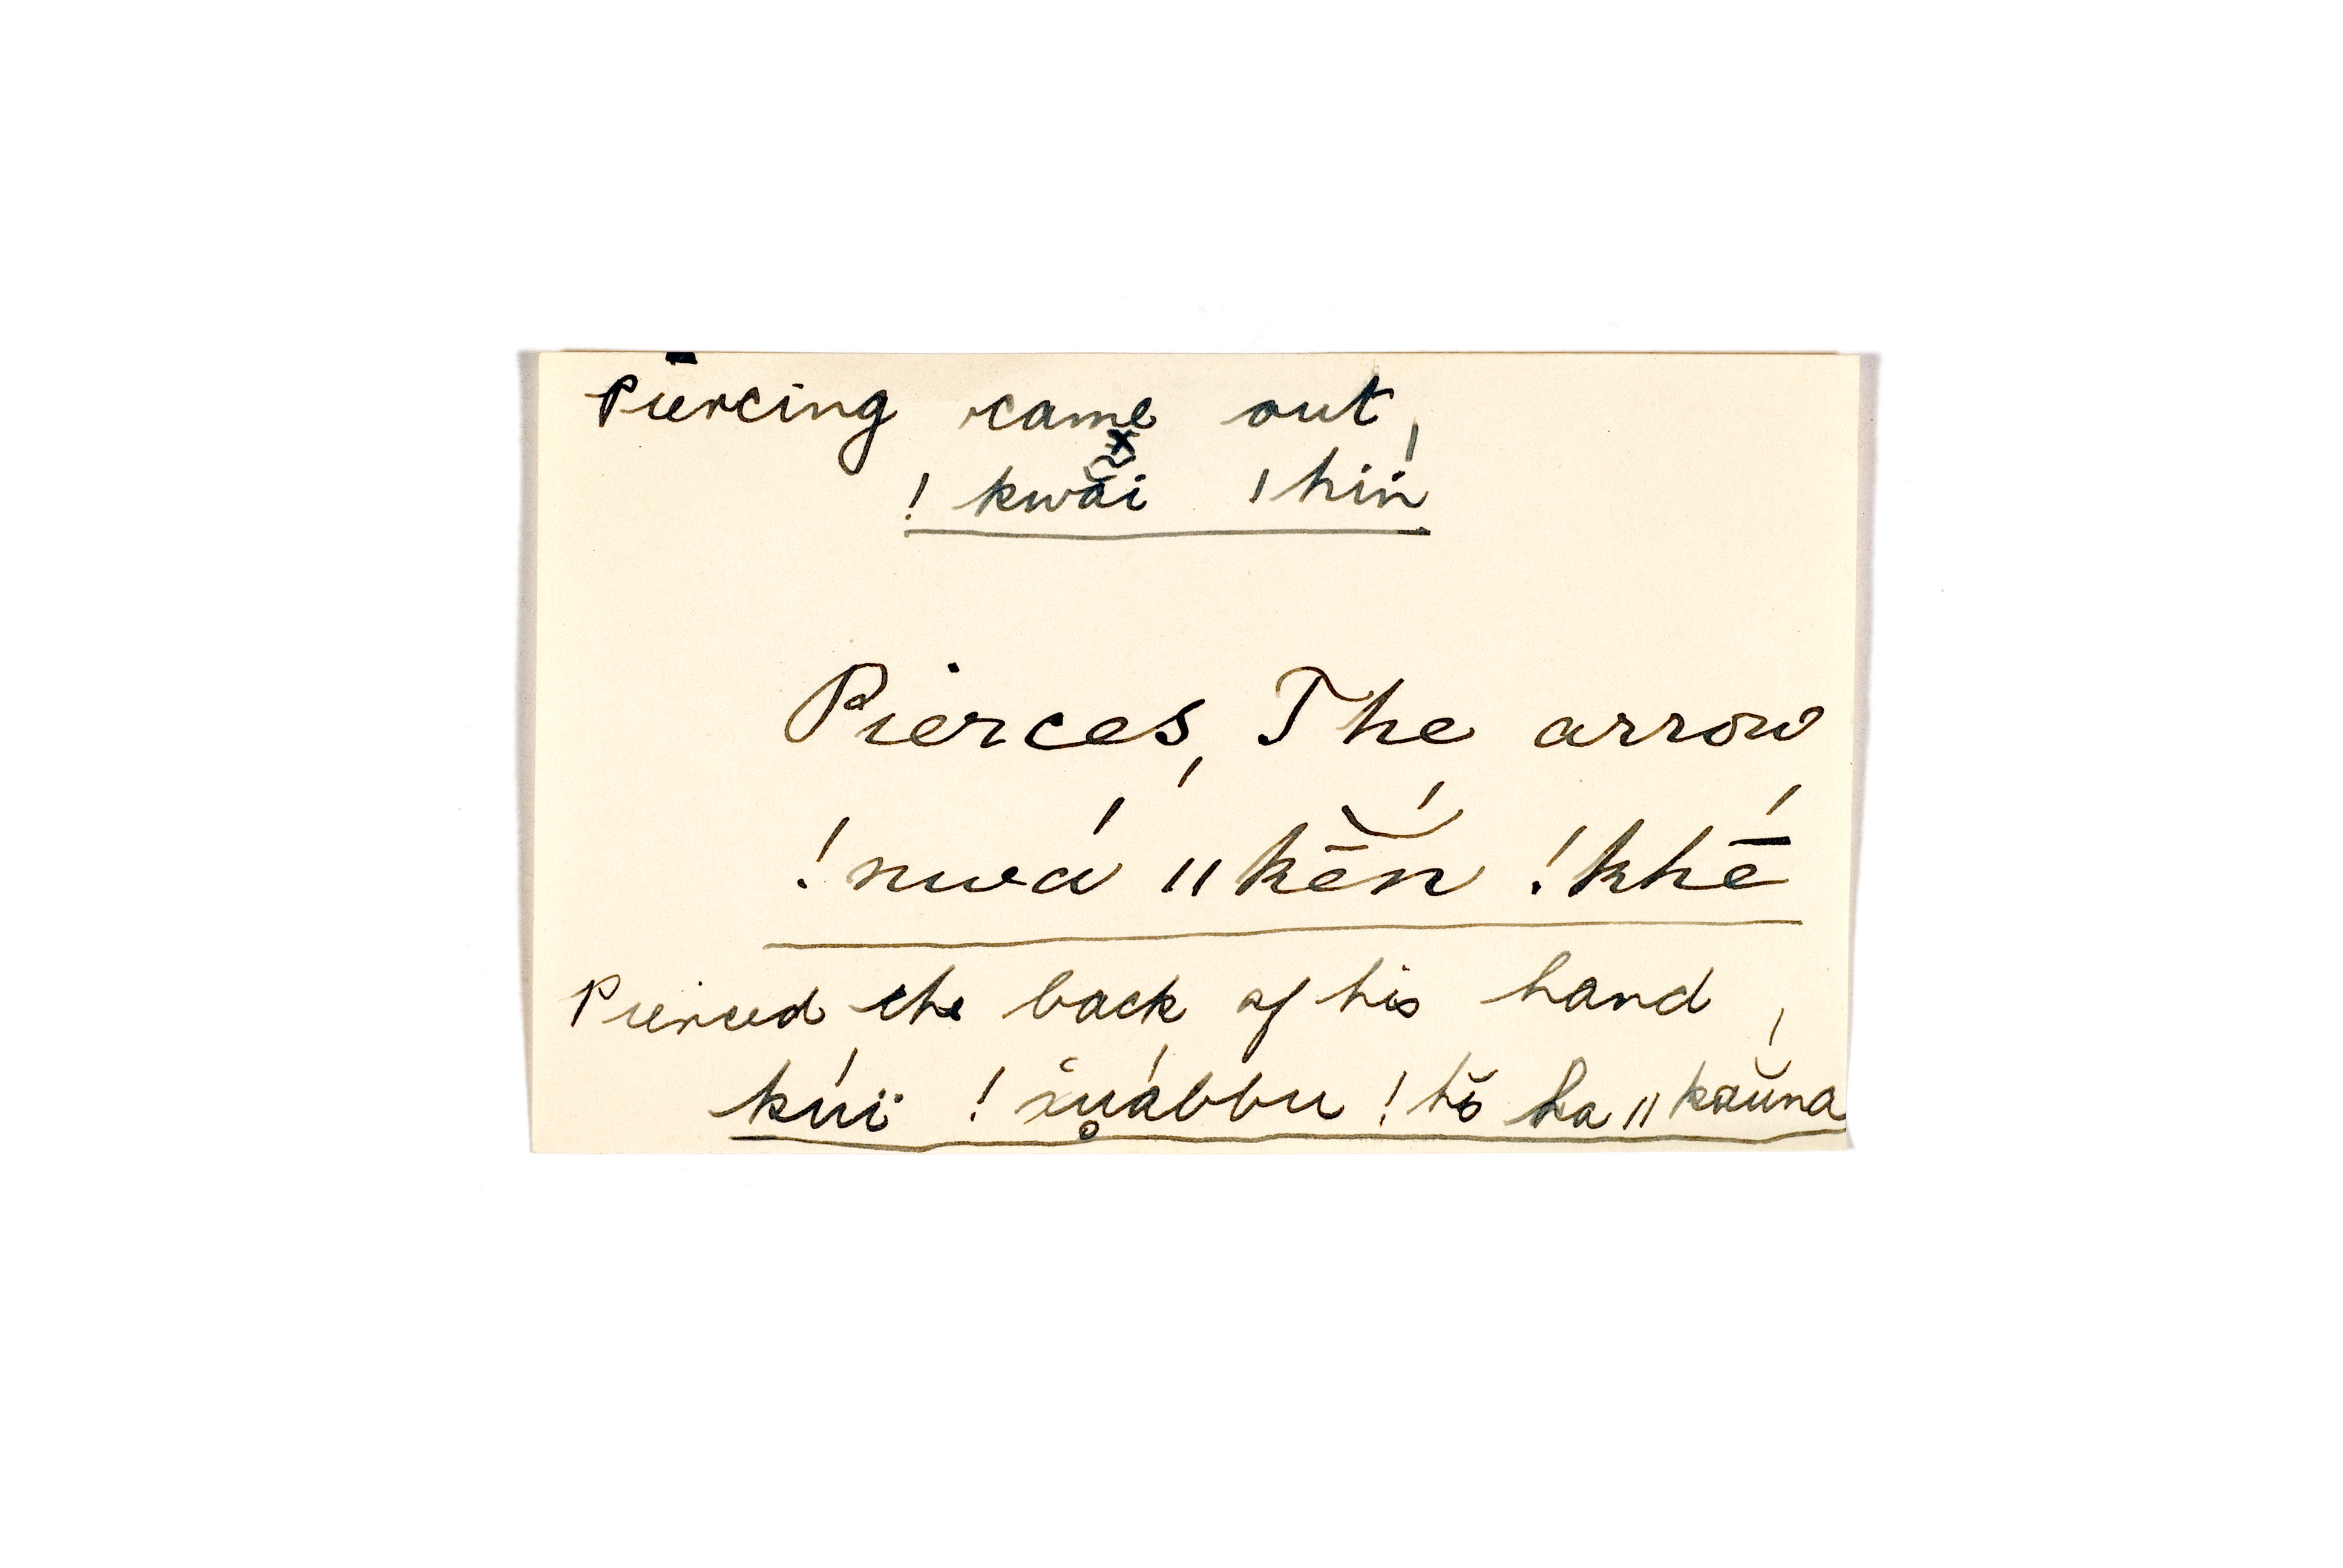 Piercing came out,
! kwãi ǀ hiń
Pierces, The arrow
!nwá ǁkē̆ń !khḗ
Pierced the back of his hand,
kúï ! x̆u̥ábbu ! hŏ ha ǁ kăŭna